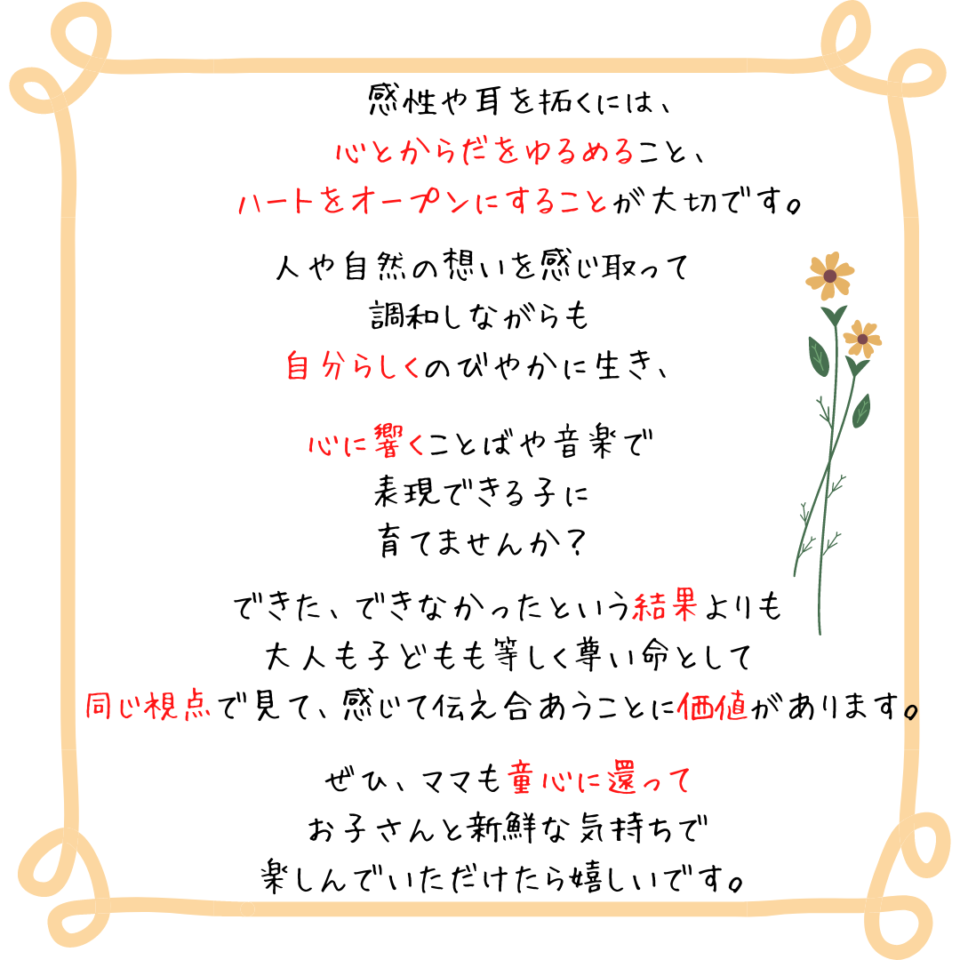 感性や耳を拓くには、
心とからだをゆるめること、
ハートをオープンにすることが大切です。
人や自然の想いを感じ取って
調和しながらも
自分らしくのびやかに生き、
心に響くことばや音楽で
表現できる子に
育てませんか？
できた、できなかったという結果よりも
大人も子どもも等しく尊い命として
同じ視点で見て、感じて伝え合あうことに価値があります。
ぜひ、ママも童心に還って
お子さんと新鮮な気持ちで
楽しんでいただけたら嬉しいです。